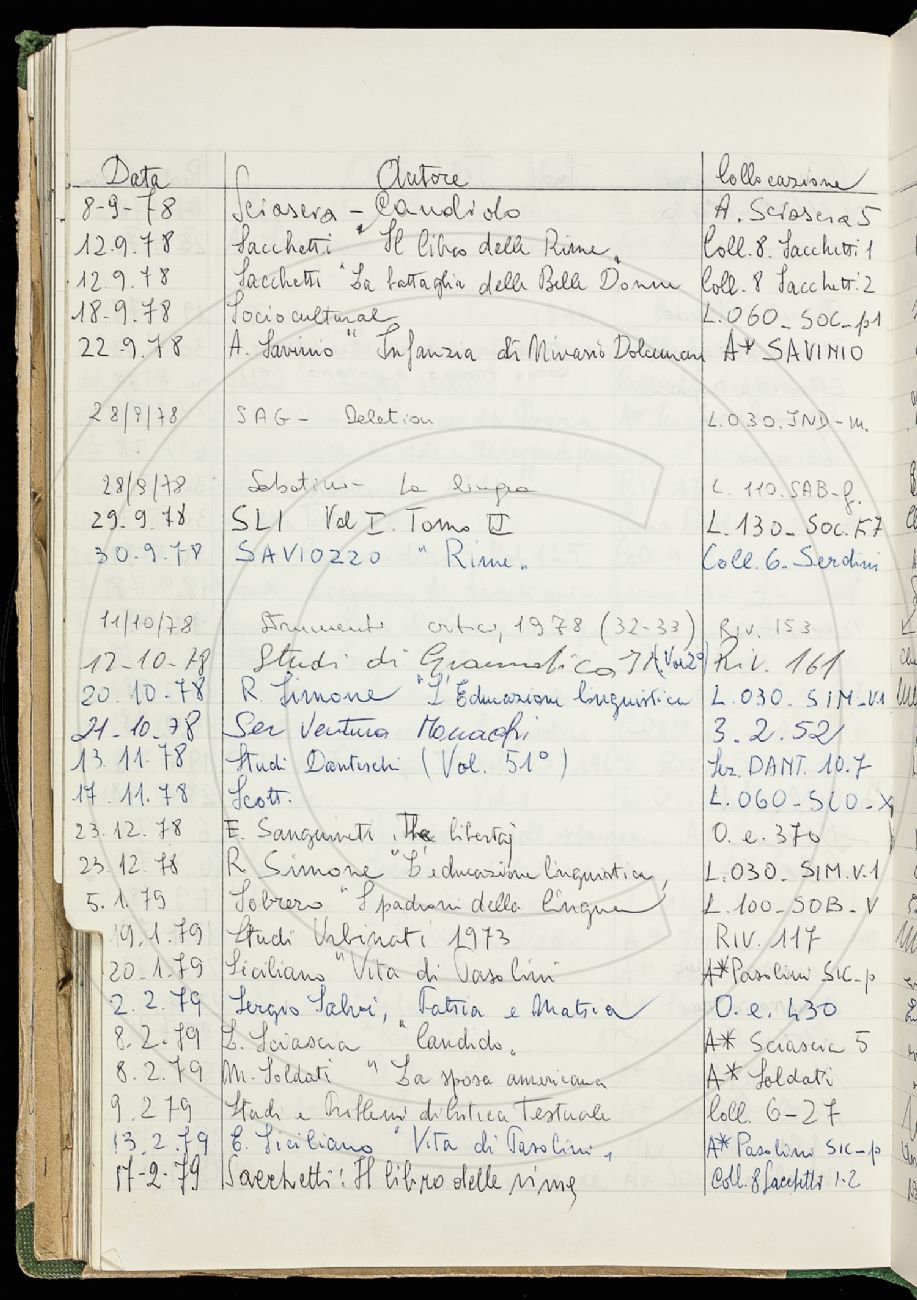 Data Autore Collocazione
8-9-78 Sciascia - Candido A. Sciascia 5
12.9.78 Sacchetti " Il libro delle Rime " Coll. 8. Sacchetti 1
12.9.78 Sacchetti "La battaglia delle Belle Donne Coll. 8 Sacchetti 2
18-9.78 Sociocultural L.060_SOC_p1
22.9.78 A. Savinio " Infanzia di Nivasio Dolcemare A* SAVINIO
28/9/78 SAG - Deletion L.030.IND-m.
28/9/78 Sabatini - La lingua L. 110.SAB-
29.9.78 SLI Vol I. Tomo II L.130_SOC.F.7
30.9.78 SAVIOZZO " Rime " Coll. 6. Serdini
11/10/78 Strumenti critici, 1978 (32-33) Riv. 153
12-10-78 Studi di Grammatica It (Vol 2°) Riv. 161
20.10.78 R. Simone "L'Educazione linguistica L.030. SIM_V.1
21.10.78 Ser Ventura Monachi 3.2.52
13.11.78 Studi Danteschi (Vol. 51°) Sez. DANT. 10.7
17.11.78 Scott. L.060_SCO_X
23.12.78 E. Sanguineti . libertà O.e.370
23.12.78 R. Simone "L'educazione linguistica, L.030_SIM.V.1
5.1.79 Sobrero " I padroni della lingua L.100-SOB-V
19.1.79 Studi Urbinati 1973 RIV. 117
20.1.79 Siciliano "Vita di Pasolini A* Pasolini SIC-p
2.2.79 Sergio Salvi, Patria e Matria O.e.430
8.2.79 L. Sciascia " Candido " A* Sciascia 5
8.2.79 M. Soldati " La sposa americana A* Soldati
9.2 79 Studi e Problemi di Critica Testuale Coll. 6-27
13.2.79 E. Siciliano " Vita di Pasolini " A* Pasolini SIC-p
17-2-79 Sacchetti: Il libro delle rime Coll. 8 Sacchetti 1.2